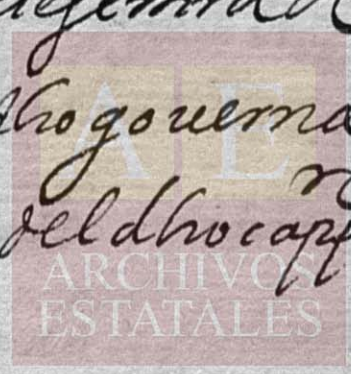 dho gouerna
del dho cap
A E
ARCHIVOS
ESTATALES